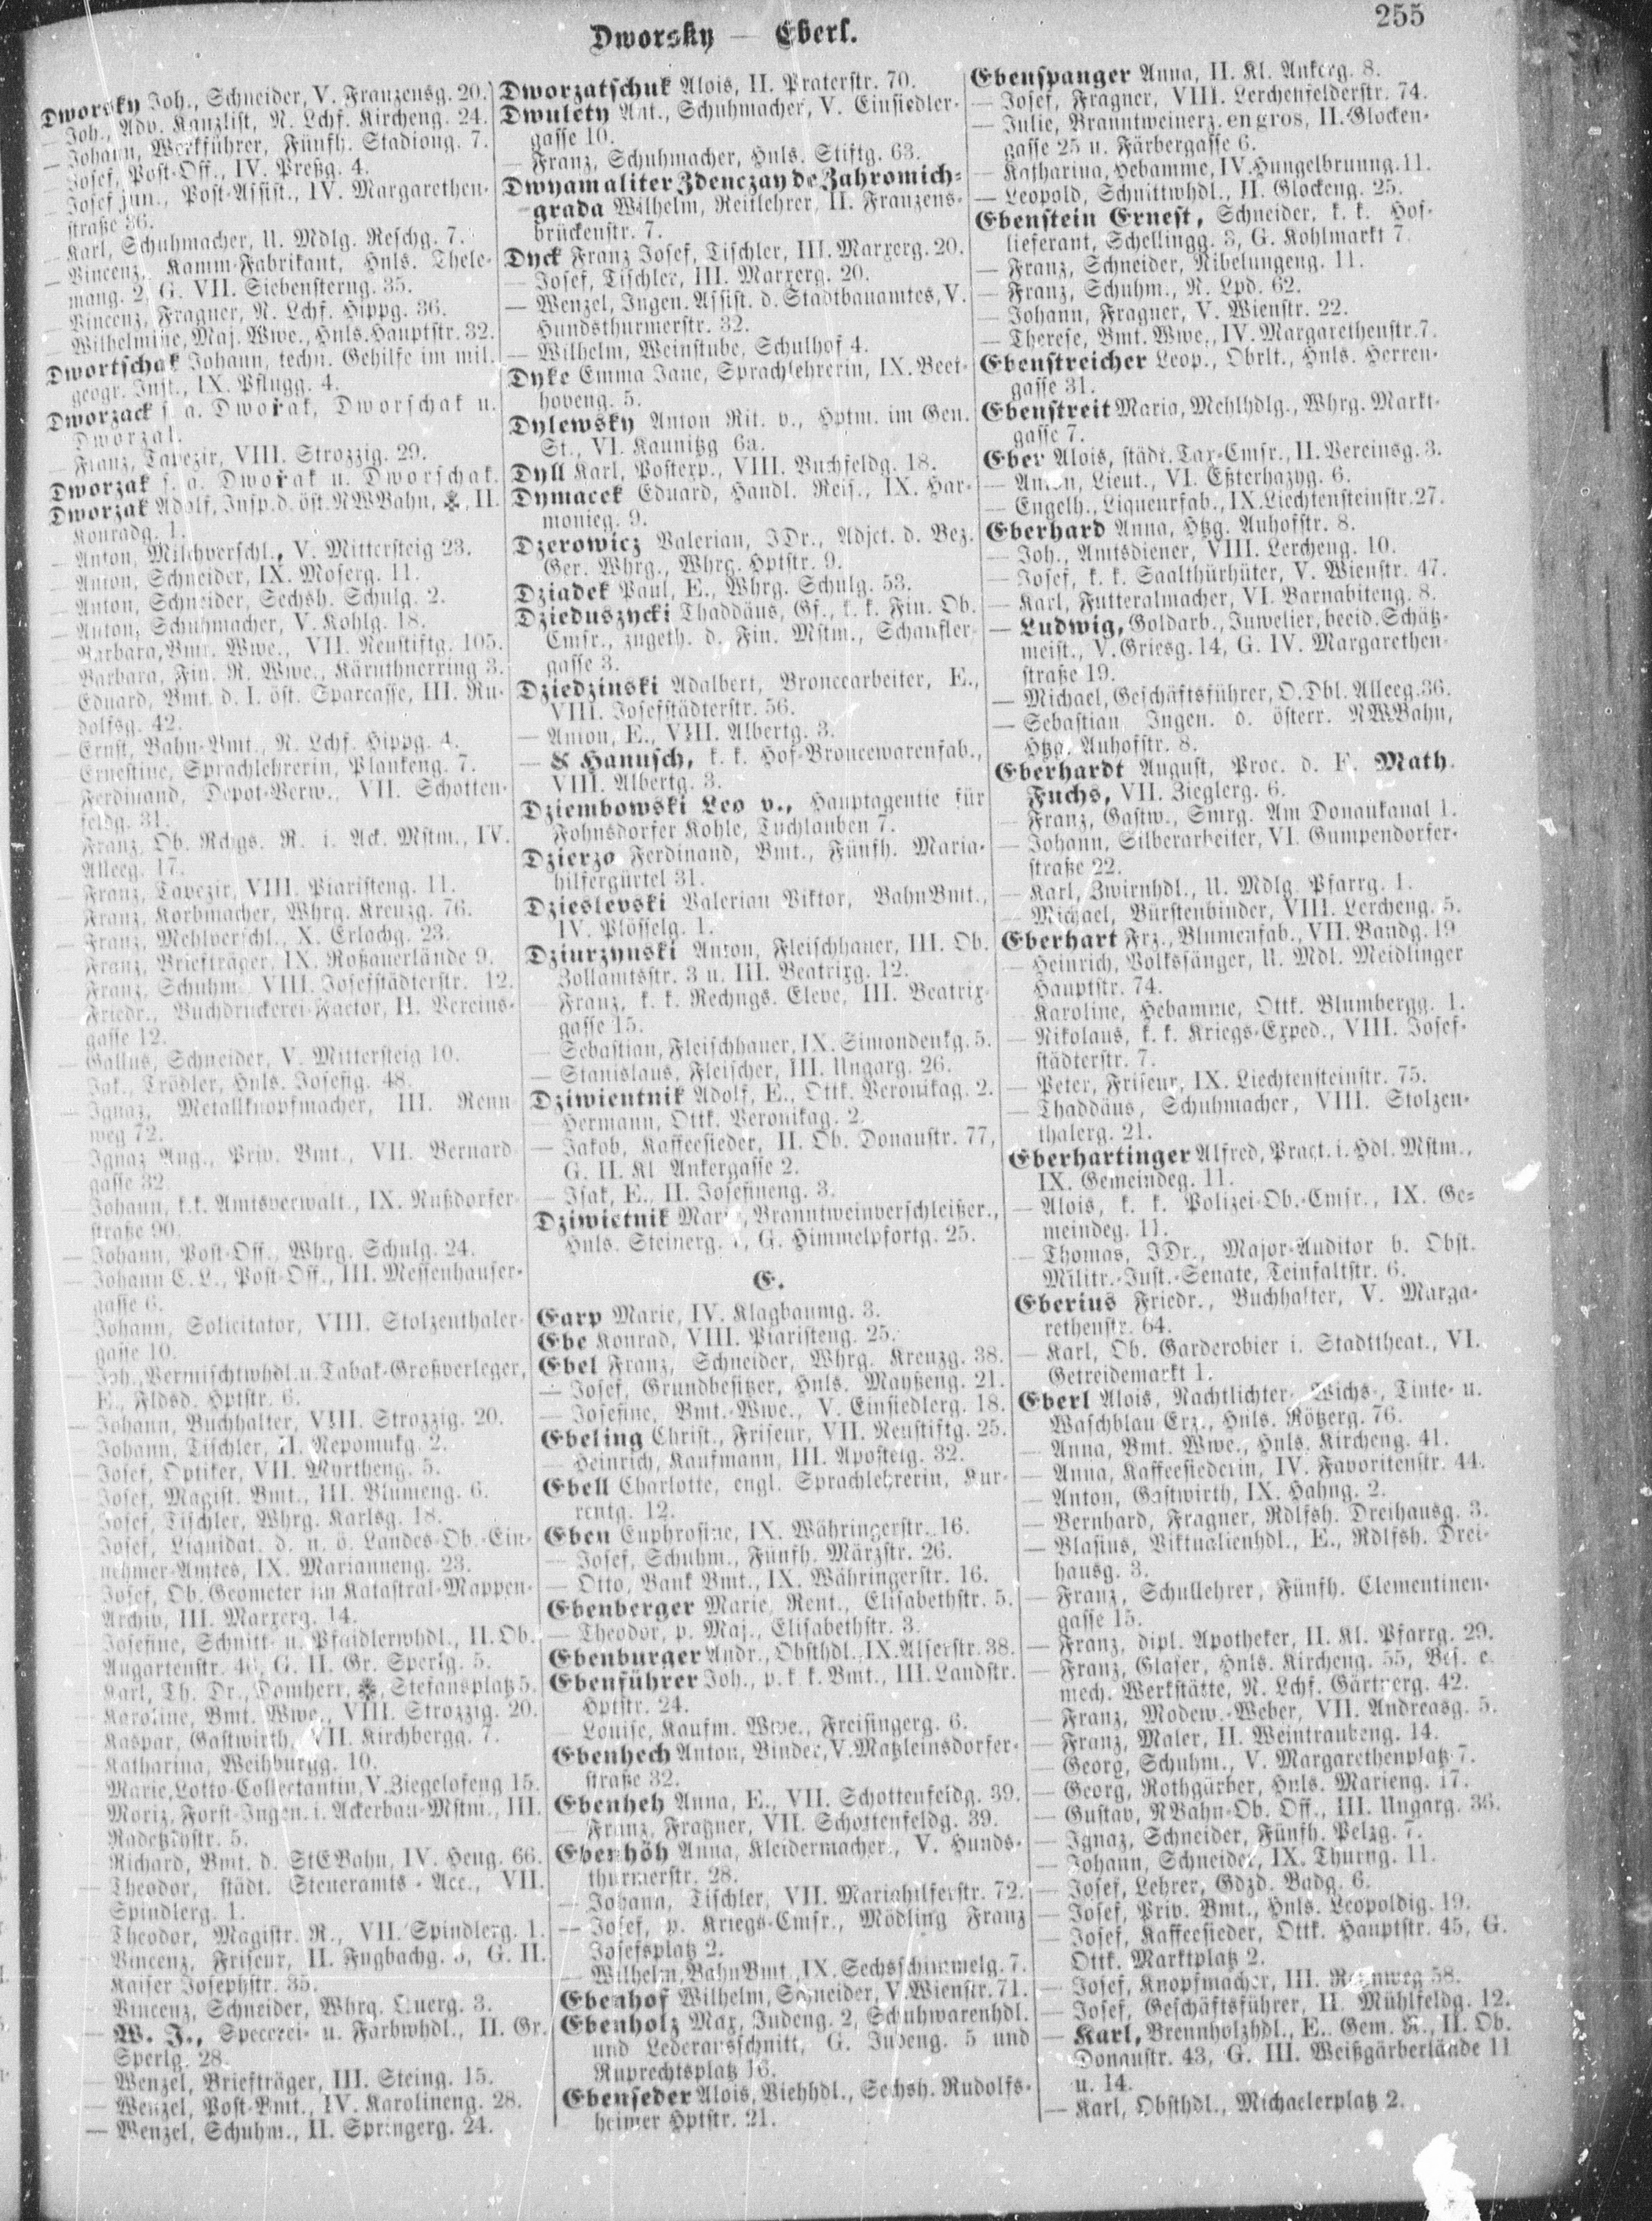 255
Dworsky — Eberl.
Dworsky Joh., Schneider, V. Franzensg. 20.
— Joh., Adv. Kanzlist, N. Lchf. Kircheng. 24.
— Johann, Werkführer, Fünfh. Stadiong. 7.
— Josef, Post-Off., IV. Preßg. 4.
— Josef jun., Post-Assist., IV. Margarethen-
straße 36.
— Karl, Schuhmacher, U. Mdlg. Reschg. 7.
— Vincenz, Kamm-Fabrikant, Hnls. Thele-
mang. 2, G. VII. Siebensterng. 35.
— Vincenz, Fragner, N. Lchf. Hippg. 36.
— Wilhelmine, Maj. Wwe., Hnls. Hauptstr. 32.
Dwortschak Johann, techn. Gehilfe im mil.
geogr. Inst., IX. Pflugg. 4.
Dworzack s. a. Dwořak, Dworschak u.
Dworzal.
— Franz, Tapezir, VIII. Strozzig. 29.
Dworzak s. a. Dwořak u. Dworschak.
Dworzak Adolf, Insp. d. öst. NWBahn, II.
Konradg. 1.
— Anton, Milchverschl., V. Mittersteig 23.
— Anton, Schneider, IX. Moserg. 11.
— Anton, Schneider, Sechsh. Schulg. 2.
— Anton, Schuhmacher, V. Kohlg. 18.
— Barbara, Bmt. Wwe., VII. Neustiftg. 105.
— Barbara, Fin. R. Wwe., Kärnthnerring 3.
— Eduard, Bmt. d. I. öst. Sparcasse, III. Ru-
dolfsg. 42.
— Ernst, Bahn-Bmt., N. Lchf. Hippg. 4.
— Ernestine, Sprachlehrerin, Plankeng. 7.
— Ferdinand, Depot-Verw., VII. Schotten-
feldg. 31.
— Franz, Ob. Rchgs. R. i. Ack. Mstm., IV.
Alleeg. 17.
— Franz, Tapezir, VIII. Piaristeng. 11.
— Franz, Korbmacher, Whrg. Kreuzg. 76.
— Franz, Mehlverschl., X. Erlachg. 23.
— Franz, Briefträger, IX. Roßauerlände 9.
— Franz, Schuhm. VIII. Josefstädterstr. 12.
— Friedr., Buchdruckerei-Factor, II. Vereins-
gasse 12.
— Gallus, Schneider, V. Mittersteig 10.
— Jak., Trödler, Hnls. Josefig. 48.
— Ignaz, Metallknopfmacher, III. Renn-
weg 72.
— Ignaz Aug., Priv. Bmt., VII. Bernard-
gasse 32.
— Johann, k.k. Amtsverwalt., IX. Nußdorfer-
straße 90.
— Johann, Post-Off., Whrg. Schulg. 24.
— Johann C. L., Post-Off., III. Messenhauser-
gasse 6.
— Johann, Solicitator, VIII. Stolzenthaler-
gasse 10.
— Joh., Vermischtwhdl. u. Tabak-Großverleger,
E., Fldsd. Hptstr. 6.
— Johann, Buchhalter, VIII. Strozzig. 20.
— Johann, Tischler, II. Nepomukg. 2.
— Josef, Optiker, VII. Myrtheng. 5.
— Josef, Magist. Bmt., III. Blumeng. 6.
— Josef, Tischler, Whrg. Karlsg. 18.
— Josef, Liquidat. d. n. ö. Landes-Ob.-Ein-
nehmer-Amtes, IX. Marianneng. 23.
— Josef, Ob. Geometer im Katastral-Mappen-
Archiv, III. Marxerg. 14.
— Josefine, Schnitt- u. Pfaidlerwhdl., II. Ob.
Augartenstr. G. II. Gr. Sperlg. 5.
— Karl, Th. Dr., Domherr, Stefansplatz 5.
— Karoline, Bmt. Wwe., VIII. Strozzig. 20.
— Kaspar, Gastwirth, VII. Kirchbergg. 7.
— Katharina, Weihburgg. 10.
— Marie, Lotto-Collectantin, V. Ziegelofeng 15.
— Moriz, Forst-Ingen. i. Ackerbau-Mstm., III.
Radetzkystr. 5.
— Richard, Bmt. d. StEBahn, IV. Heug. 66.
— Theodor, städt. Steueramts-Acc., VII.
Spindlerg. 1.
— Theodor, Magistr. R., VII. Spindlerg. 1.
— Vincenz, Friseur, II. Fugbachg. G. II.
Kaiser Josephstr. 35.
— Vincenz, Schneider, Whrg. Querg. 3.
— W. J., Specerei- u. Farbwhdl., II. Gr.
Sperlg. 28.
— Wenzel, Briefträger, III. Steing. 15.
— Wenzel, Post-Bmt., IV. Karolineng. 28.
— Wenzel, Schuhm., II. Springerg. 24.
Dworzatschuk Alois, II. Praterstr. 70.
Dwulety Ant., Schuhmacher, V. Einsiedler-
gasse 10.
— Franz, Schuhmacher, Hnls. Stiftg. 63.
Dwyamaliter Zdenczay de Zahromich-
grada Wilhelm, Reitlehrer, II. Franzens-
brückenstr. 7.
Dyck Franz Josef, Tischler, III. Marxerg. 20.
— Josef, Tischler, III. Marxerg. 20.
— Wenzel, Ingen. Assist. d. Stadtbauamtes, V.
Hundsthurmerstr. 32.
— Wilhelm, Weinstube, Schulhof 4.
Dyke Emma Jane, Sprachlehrerin, IX. Beet-
hoveng. 5.
Dylewsky Anton Rit. v., Hptm. im Gen.
St., VI. Kaunitzg 6a.
Dyll Karl, Postexp., VIII. Buchfeldg. 18.
Dymacek Eduard, Handl. Reis., IX. Har-
monieg. 9.
Dzerowicz Valerian, JDr., Adjct. d. Bez.
Ger. Whrg., Whrg. Hptstr. 9.
Dziadek Paul, E., Whrg. Schulg. 53.
Dzieduszycki Thaddäus, Gf., k. k. Fin. Ob.
Cmsr., zugeth. d. Fin. Mstm., Schaufler-
gasse 3.
Dziedzinski Adalbert, Broncearbeiter, E.,
VIII. Josefstädterstr. 56.
— Anton, E., VIII. Albertg. 3.
— & Hanusch, k. k. Hof-Broncewarenfab.,
VIII. Albertg. 3.
Dziembowski Leo v., Hauptagentie für
Fohnsdorfer Kohle, Tuchlauben 7.
Dzierzo Ferdinand, Bmt., Fünfh. Maria-
hilfergürtel 31.
Dzieslevski Valerian Viktor, BahnBmt.,
IV. Plösselg. 1.
Dziurzynski Anton, Fleischhauer, III. Ob.
Zollamtsstr. 3 u. III. Beatrixg. 12.
— Franz, k. k. Rechngs. Eleve, III. Beatrix-
gasse 15.
— Sebastian, Fleischhauer, IX. Simondenkg. 5.
— Stanislaus, Fleischer, III. Ungarg. 26.
Dziwientnik Adolf, E., Ottk. Veronikag. 2.
— Hermann, Ottk. Veronikag. 2.
— Jakob, Kaffeesieder, II. Ob. Donaustr. 77,
G. II. Kl Ankergasse 2.
— Isak, E., II. Josefineng. 3.
Dziwietnik Branntweinverschleißer.,
Hnls. Steinerg. G. Himmelpfortg. 25.
E.
Earp Marie, IV. Klagbaumg. 3.
Ebe Konrad, VIII. Piaristeng. 25.
Ebel Franz, Schneider, Whrg. Kreuzg. 38.
— Josef, Grundbesitzer, Hnls. Mayßeng. 21.
— Josefine, Bmt.-Wwe., V. Einsiedlerg. 18.
Ebeling Christ., Friseur, VII. Neustiftg. 25.
— Heinrich, Kaufmann, III. Apostelg. 32.
Ebell Charlotte, engl. Sprachlehrerin, Kur-
rentg. 12.
Eben Euphrosine, IX. Währingerstr. 16.
— Josef, Schuhm., Fünfh. Märzstr. 26.
— Otto, Bank Bmt., IX. Währingerstr. 16.
Ebenberger Marie, Rent., Elisabethstr. 5.
— Theodor, p. Maj., Elisabethstr. 3.
Ebenburger Andr., Obsthdl., IX. Alserstr. 38.
Ebenführer Joh., p. k. k. Bmt., III. Landstr.
Hptstr. 24.
— Louise, Kaufm. Wwe., Freisingerg. 6.
Ebenhech Anton, Binder, V. Matzleinsdorfer-
straße 32.
Ebenheh Anna, E., VII. Schottenfeldg. 39.
— Franz, Fragner, VII. Schottenfeldg. 39.
Ebenhöh Anna, Kleidermacher., V. Hunds-
thurmerstr. 28.
— Johann, Tischler, VII. Mariahilferstr. 72.
— Josef, p. Kriegs-Cmsr., Mödling Franz
Josefsplatz 2.
— Wilhelm, BahnBmt., IX. Sechsschimmelg. 7.
Ebenhof Wilhelm, Schneider, V. Wienstr. 71.
Ebenholz Max, Judeng. 2, Schuhwarenhdl.
und Lederausschnitt, G. Judeng. 5 und
Ruprechtsplatz 16.
Ebenseder Alois, Viehhdl., Sechsh. Rudolfs-
heimer Hptstr. 21.
Ebenspanger Anna, II. Kl. Ankerg. 8.
— Josef, Fragner, VIII. Lerchenfelderstr. 74.
— Julie, Branntweinerz. en gros, II. Glocken-
gasse 25 u. Färbergasse 6.
— Katharina, Hebamme, IV. Hungelbrunng. 11.
— Leopold, Schnittwhdl., II. Glockeng. 25.
Ebenstein Ernest, Schneider, k. k. Hof-
lieferant, Schellingg. 3, G. Kohlmarkt 7.
— Franz, Schneider, Nibelungeng. 11.
— Franz, Schuhm., N. Lpd. 62.
— Johann, Fragner, V. Wienstr. 22.
— Therese, Bmt. Wwe., IV. Margarethenstr. 7.
Ebenstreicher Leop., Obrlt., Hnls. Herren-
gasse 31.
Ebenstreit Maria, Mehlhdlg., Whrg. Markt-
gasse 7.
Eber Alois, städt. Tax-Cmsr., II. Vereinsg. 3.
— Anton, Lieut., VI. Eßterhazyg. 6.
— Engelh., Liqueurfab., IX. Liechtensteinstr. 27.
Eberhard Anna, Htzg. Auhofstr. 8.
— Joh., Amtsdiener, VIII. Lercheng. 10.
— Josef, k. k. Saalthürhüter, V. Wienstr. 47.
— Karl, Futteralmacher, VI. Barnabiteng. 8.
— Ludwig, Goldarb., Juwelier, beeid. Schätz-
meist., V. Griesg. 14, G. IV. Margarethen-
straße 19.
— Michael, Geschäftsführer, O. Dbl. Alleeg. 36.
— Sebastian Ingen. d. österr. NWBahn,
Htzg. Auhofstr. 8.
Eberhardt August, Proc. d. F. Math.
Fuchs, VII. Zieglerg. 6.
— Franz, Gastw., Smrg. Am Donaukanal 1.
— Johann, Silberarbeiter, VI. Gumpendorfer-
straße 22.
— Karl, Zwirnhdl., U. Mdlg. Pfarrg. 1.
— Michael, Bürstenbinder, VIII. Lercheng. 5.
Eberhart Frz., Blumenfab., VII. Bandg. 19
— Heinrich, Volkssänger, U. Mdl. Meidlinger
Hauptstr. 74.
— Karoline, Hebamme, Ottk. Blumbergg. 1.
— Nikolaus, k. k. Kriegs-Exped., VIII. Josef-
städterstr. 7.
— Peter, Friseur, IX. Liechtensteinstr. 75.
— Thaddäus, Schuhmacher, VIII. Stolzen-
thalerg. 21.
Eberhartinger Alfred, Pract. i. Hdl. Mstm.,
IX. Gemeindeg. 11.
— Alois, k. k. Polizei-Ob.-Cmsr., IX. Ge-
meindeg. 11.
— Thomas, JDr., Major-Auditor b. Obst.
Militr.-Just.-Senate, Teinfaltstr. 6.
Eberius Friedr., Buchhalter, V. Marga-
rethenstr. 64.
— Karl, Ob. Garderobier i. Stadttheat., VI.
Getreidemarkt 1.
Eberl Alois, Nachtlichter-, Wichs-, Tinte- u.
Waschblau Erz., Hnls. Rötzerg. 76.
— Anna, Bmt. Wwe., Hnls. Kircheng. 41.
— Anna, Kaffeesiederin, IV. Favoritenstr. 44.
— Anton, Gastwirth, IX. Hahng. 2.
— Bernhard, Fragner, Rdlfsh. Dreihausg. 3.
— Blasius, Viktualienhdl., E., Rdlfsh. Drei-
hausg. 3.
— Franz, Schullehrer, Fünfh. Clementinen-
gasse 15.
— Franz, dipl. Apotheker, II. Kl. Pfarrg. 29.
— Franz, Glaser, Hnls. Kircheng. 55, Bes. e.
mech. Werkstätte, N. Lchf. Gärtnerg. 42.
— Franz, Modew.-Weber, VII. Andreasg. 5.
— Franz, Maler, II. Weintraubeng. 14.
— Georg, Schuhm., V. Margarethenplatz 7.
— Georg, Rothgärber, Hnls. Marieng. 17.
— Gustav, NBahn-Ob. Off., III. Ungarg. 36.
— Ignaz, Schneider, Fünfh. Pelzg. 7.
— Johann, Schneider, IX. Thurng. 11.
— Josef, Lehrer, Gdzd. Badg. 6.
— Josef, Priv. Bmt., Hnls. Leopoldig. 19.
— Josef, Kaffeesieder, Ottk. Hauptstr. 45, G.
Ottk. Marktplatz 2.
— Josef, Knopfmacher, III. Rennweg 58.
— Josef, Geschäftsführer, II. Mühlfeldg. 12.
— Karl, Brennholzhdl., E., Gem. R., II. Ob.
Donaustr. 43, G. III. Weißgärberlände 11
u. 14.
— Karl, Obsthdl., Michaelerplatz 2.